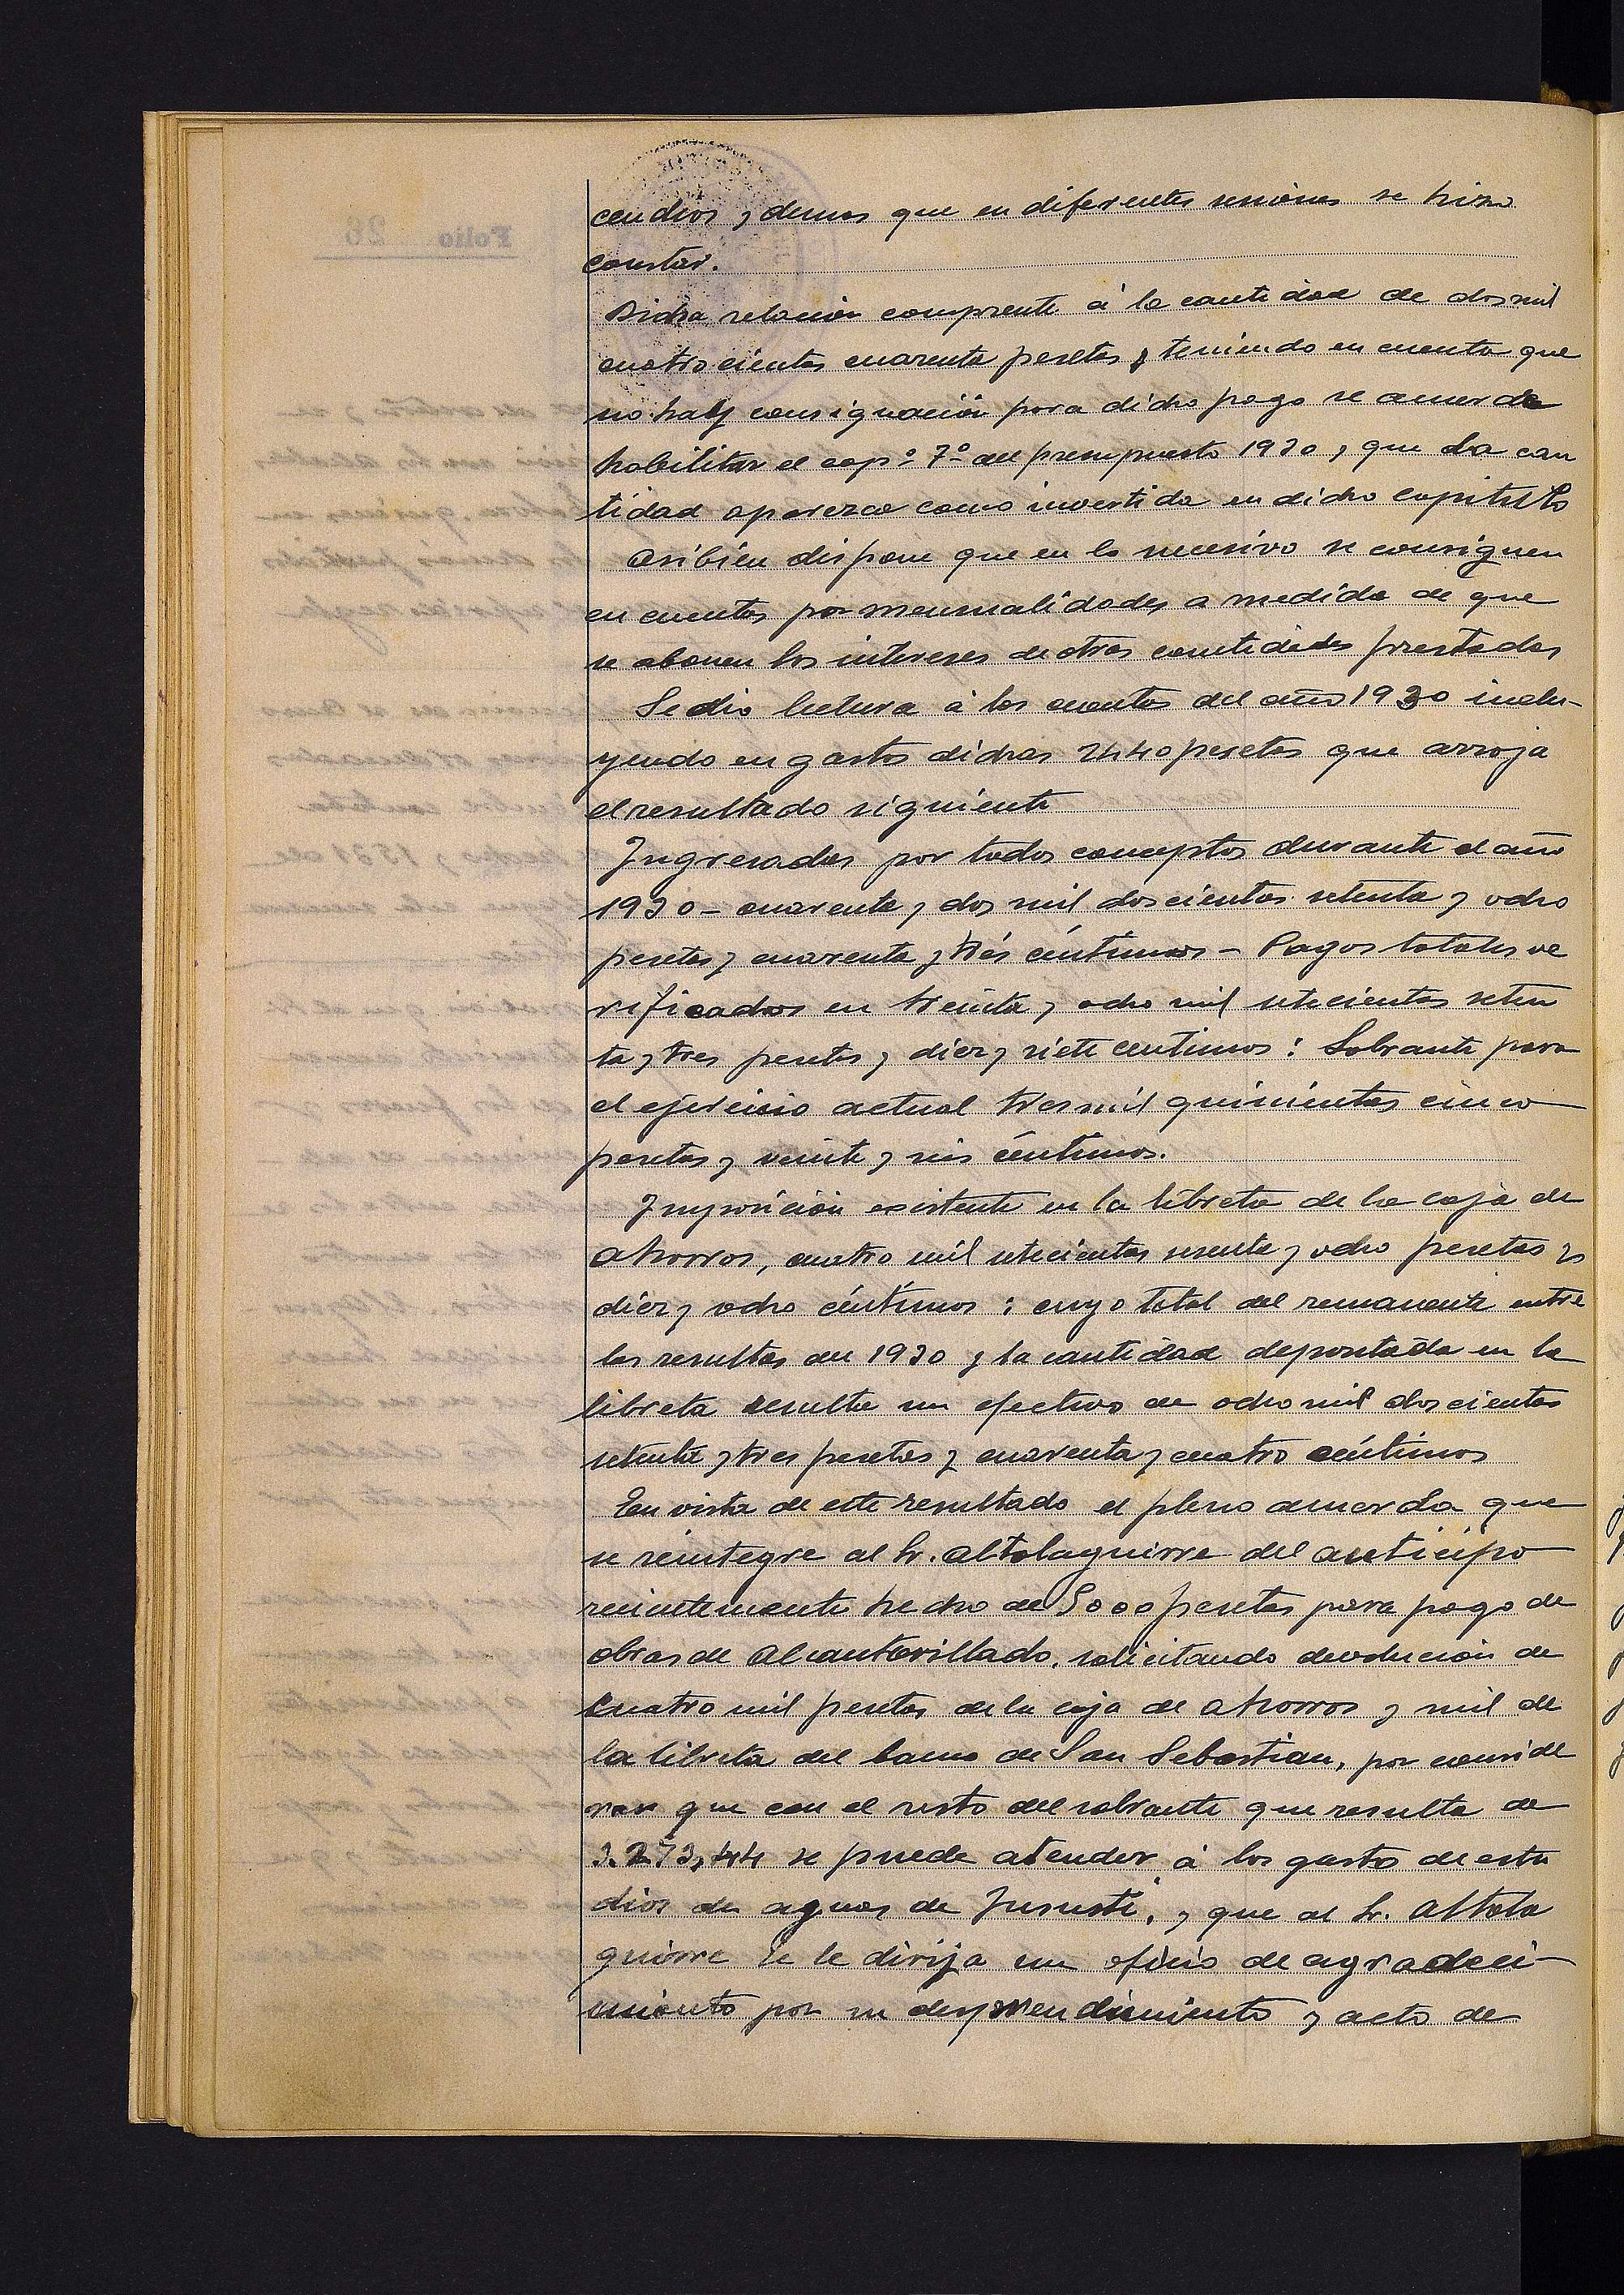 cendios y demas que en diferentes sesiones se hizo
constar.
Dicha relación comprente á la cantidad de dos mil
cuatrocientas cuarenta pesetas y teniendo en cuenta que
no hay consignación para dicho pago se acuerda
habilitar el cap.º 7º del presupuesto 1930 y que la can
tidad aparezca como invertida en dicho capitulo
Asibien dispone que en lo sucesivo se consiguen
en cuentas por mensualidades a medida de que
se abonen los intereses de otras cantidades prestadas
Se dió lectura á las cuentas del año 1930 inclu-
yendo en gastos dichas 2440 pesetas que arroja
el resultado siguiente
Ingresadas por todos conceptos durante el año
1930 - cuarenta y dos mil doscientas setenta y ocho
pesetas y cuarenta y trés céntimos - Pagos totales ve
rificados en treinta y ocho mil setecientas seten
ta y tres pesetas y diez y siete centimos: Sobrante para
el ejercicio actual tres mil quinientas cinco
pesetas y veinte y seis céntimos.
Imposición existente en la libreta de la caja de
ahorros, cuatro mil setecientas sesenta y ocho pesetas y
diez y ocho céntimos: cuyo total del remanente entre
las resultas de 1930 y la cantidad depositada en la
libreta resulta un efectivo de ocho mil doscientas
setenta y tres pesetas y cuarenta y cuatro céntimos
En vista de este resultado el pleno acuerda que
se reintegre al Sr. Altolaguirre del anticipo
recientemente hecho de 5000 pesetas para pago de
obras de alcantarillado, solicitando devolución de
cuatro mil pesetas de la caja de ahorros y mil de
la libreta del banco de San Sebastian, por conside
rar que con el resto del sobrante que resulta de
3.273,44 se puede atender á los gastos de estu
dios de aguas de Jususti, y que al Sr. Altola
guirre se le dirija un oficio de agradeci-
miento por su desprendimiento y acto de
Folio 26